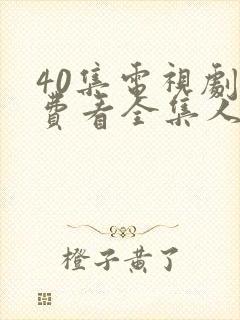 40集電視劇
費看全集人
橙子黄了